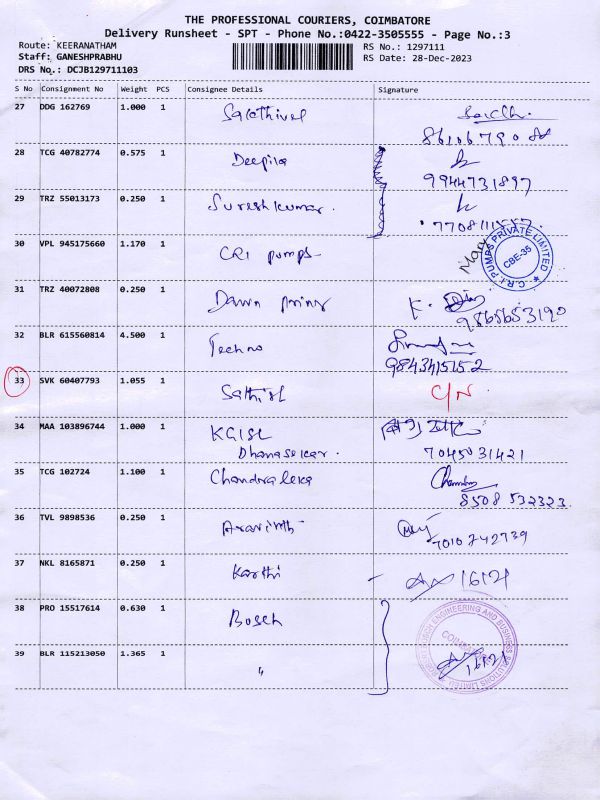 THE PROFESSIONAL COURIERS, COIMBATORE
Delivery Runsheet - SPT - Phone No.:0422-3505555 - Page No.:3
Route: KEERANATHAM RS No.: 1297111
Staff: GANESHPRABHU RS Date: 28-Dec-2023
DRS No.: DCJB129711103
S No Consignment No Weight PCS Consignee Details Signature
27 DDG 162769 1.000 1 Sakthivel
28 TCG 40782774 0.575 1 Deepika
9944731897
29 TRZ 55013173 0.250 1 Suresh kumar.
30 VPL 945175660 1.170 1 CRI pumps
C.R.I. PUMPS PRIVATE LIMITED
CBE-35
31 TRZ 40072808 0.250 1 Dawn
9865653190
32 BLR 615560814 4.500 1 Techno
9843415152
33 SVK 60407793 1.055 1 Sathish C/N
34 MAA 103896744 1.000 1 KGISL
Dhanasekar.
7045031421
35 TCG 102724 1.100 1 Chandraleka
8508 532323
36 TVL 9898536 0.250 1 Aravinth
7010742739
37 NKL 8165871 0.250 1 Karthi 16121
38 PRO 15517614 0.630 1 Bosch
39 BLR 115213050 1.365 1 "
ENGINEERING AND BUSINESS SOLUTIONS LIMITED
COIMBATORE
16121